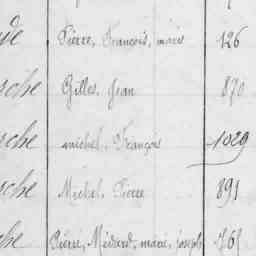 de Pierre, François, marie 126
sche Gilles, Jean 870
sche michel, François 1029
sche Michel, Pierre 891
che Pierre, Médard, marie, joseph 765